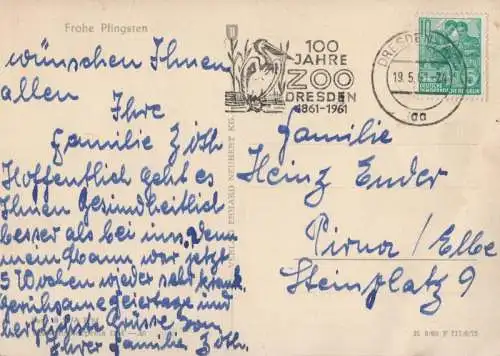 Frohe Pfingsten
wünschen Ihnen
allen
Ihre
Familie Zöth
Hoffentlich geht es
Ihnen gesundheitlich
besser als bei uns, denn
mein Mann war jetzt
5 Wochen wieder sehr krank
geruhsame Feiertage und
herzlichste Grüsse von
Ihrer Familie Zöth.
VERLAG ERHARD NEUBERT KG.
100
JAHRE
ZOO
DRESDEN
1861-1961
DRESDEN
19.5.61-24
aa
10
DEUTSCHE
Familie
Heinz Ender
Pirna / Elbe
Steinplatz 9